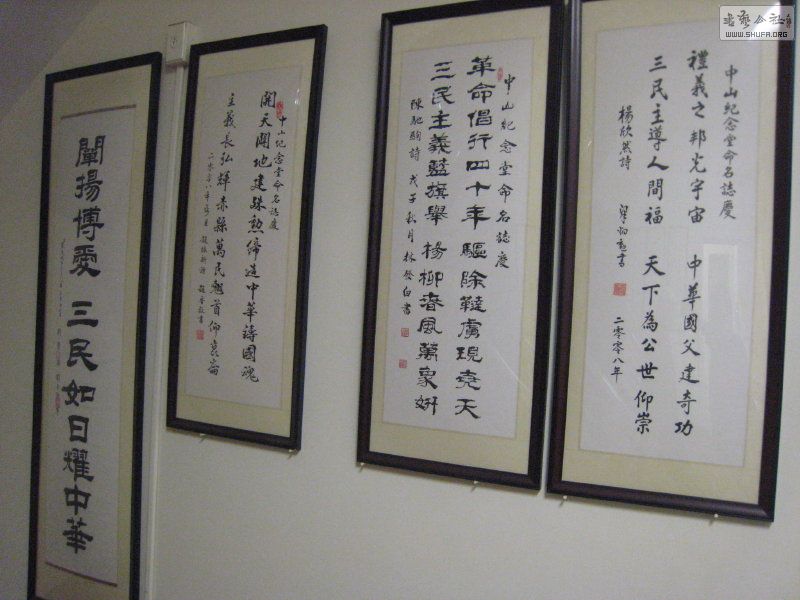 書藝公社
WWW.SHUFA.ORG
中山紀念堂命名誌慶
禮義之邦光宇宙 中華國父建奇功
三民主導人間福 天下為公世仰崇
楊欣然詩
二零零八年
中山紀念堂命名誌慶
革命倡行四十年 驅除韃虜現堯天
三民主義藍旗舉 楊柳春風萬象妍
陳馳駒詩 戊子秋月 林發白書
中山紀念堂命名誌慶
開天闢地建殊勲締造中華鑄國魂
主義長弘輝赤縣萬民翹首仰崑崙
二零零八年
闡揚博愛 三民如日耀中華